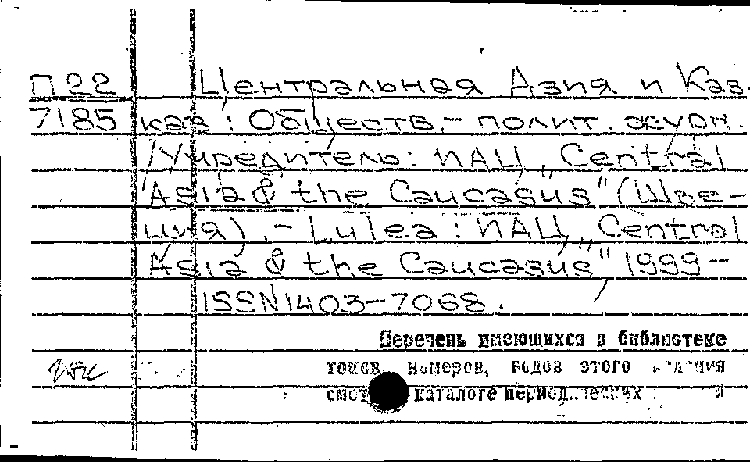 П22 Центральная Азия и Кав-
7185 каз: Обществ.-полит. журн.
/Учредитель: ИАЦ „Central
Asia & the Caucasus" (Шве-
ция). - Lulea: ИАЦ „Central
Asia & the Caucasus" 1999-
ISSN 1403-7068.
Перечень имеющихся в библиотеке
томов, номеров, годов этого издания
каталоге